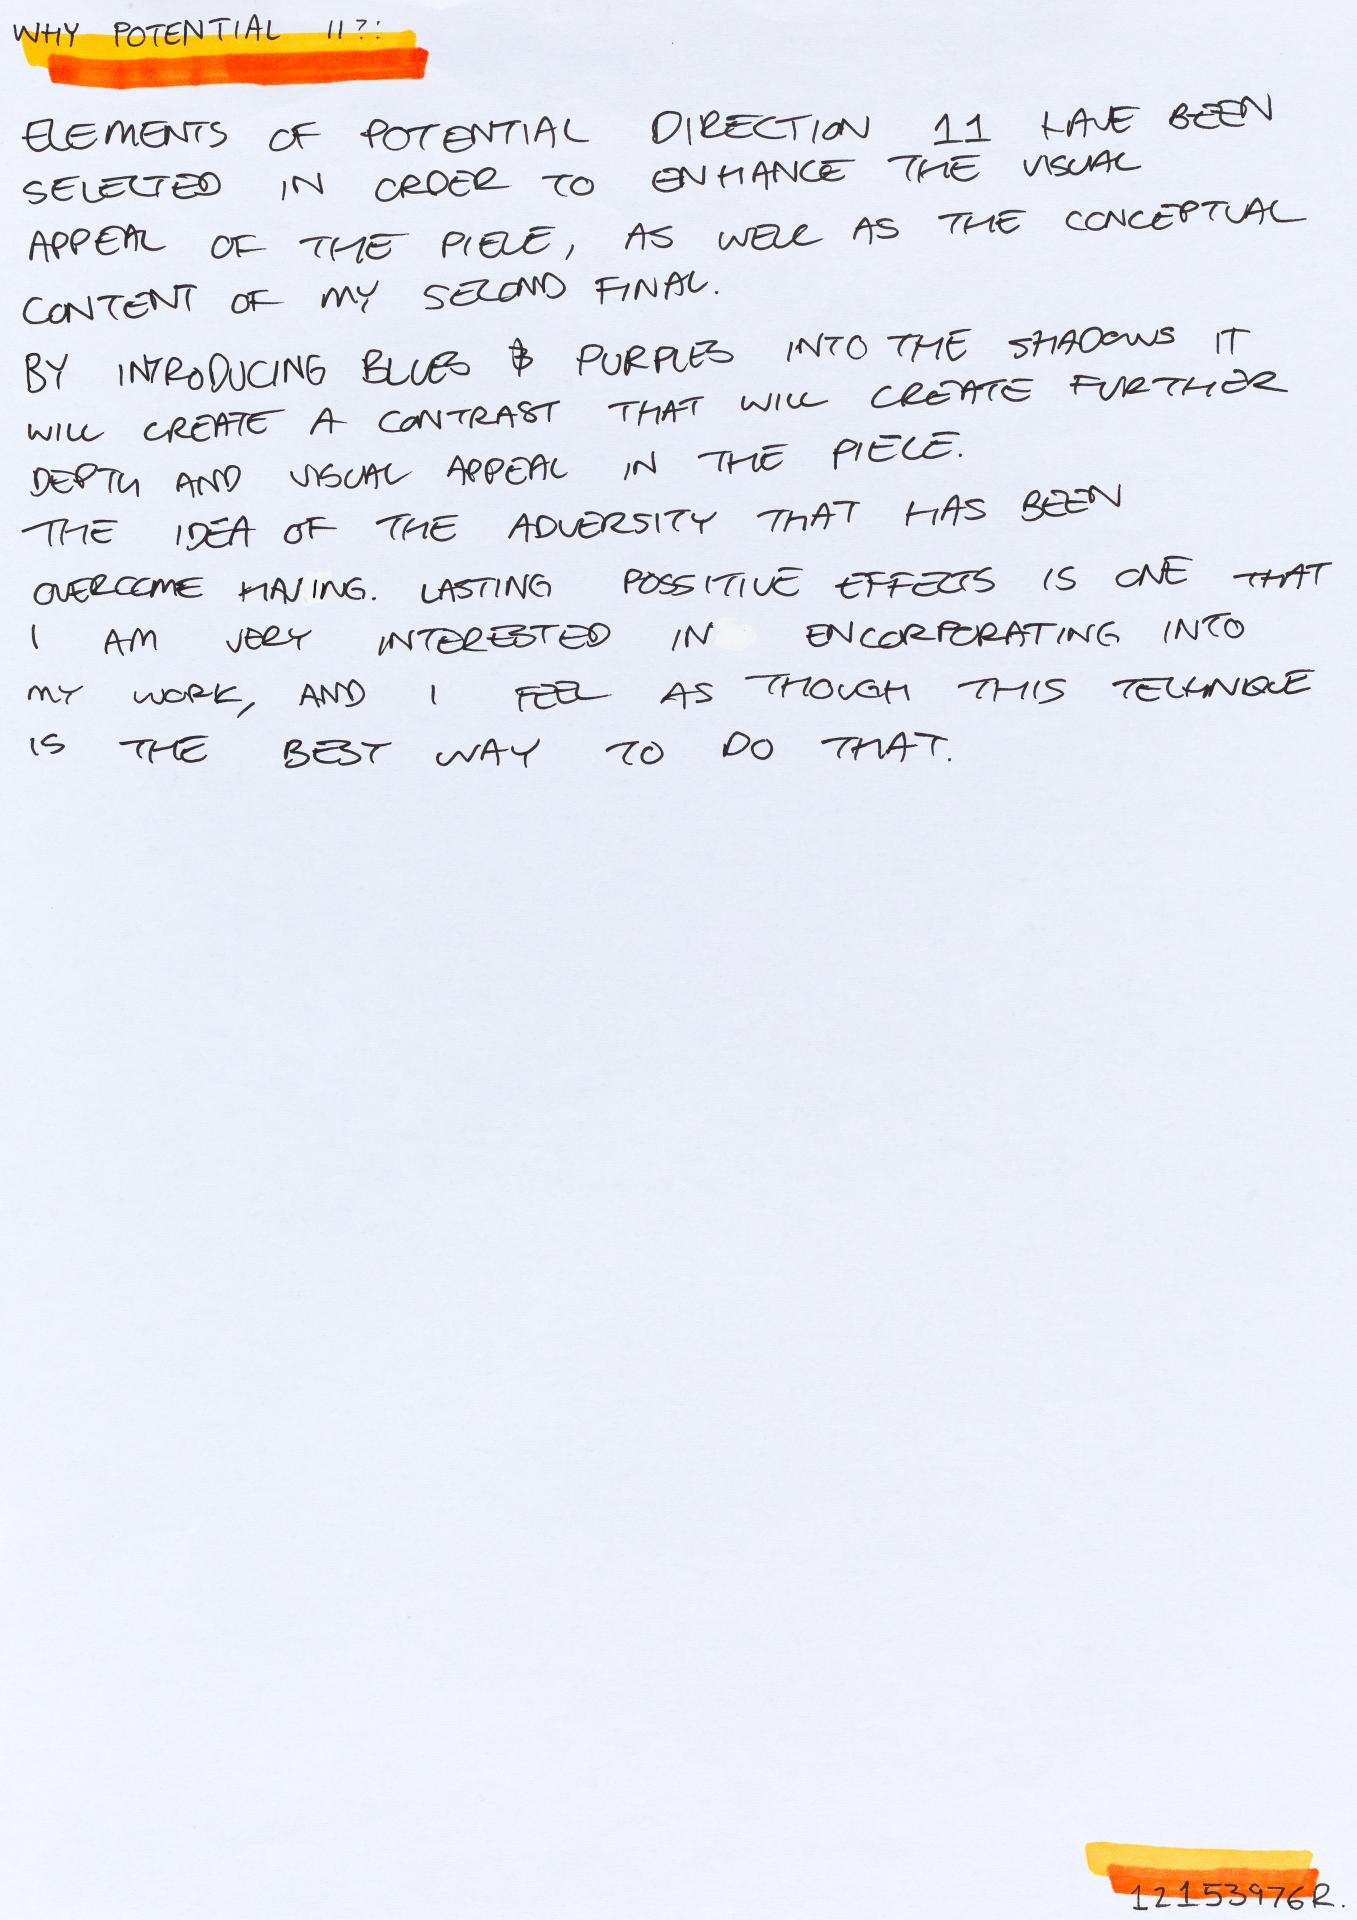 WHY POTENTIAL 11?:
ELEMENTS OF POTENTIAL DIRECTION 11 HAVE BEEN
SELECTED IN ORDER TO ENHANCE THE VISUAL
APPEAL OF THE PIECE, AS WELL AS THE CONCEPTUAL
CONTENT OF MY SECOND FINAL.
BY INTRODUCING BLUES & PURPLES INTO THE SHADOWS IT
WILL CREATE A CONTRAST THAT WILL CREATE FURTHER
DEPTH AND VISUAL APPEAL IN THE PIECE.
THE IDEA OF THE ADVERSITY THAT HAS BEEN
OVERCOME HAVING. LASTING POSSITIVE EFFECTS IS ONE THAT
I AM VERY INTERESTED IN ENCORPORATING INTO
MY WORK, AND I FEEL AS THOUGH THIS TECHNIQUE
IS THE BEST WAY TO DO THAT.
12153976R.